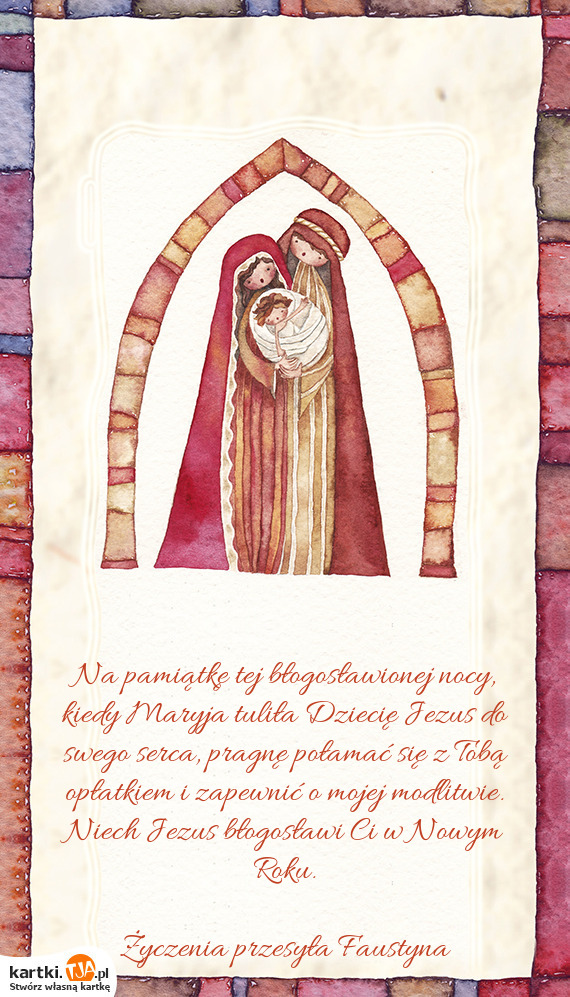 Na pamiątkę tej błogosławionej nocy,
kiedy Maryja tuliła Dziecię Jezus do
swego serca, pragnę połamać się z Tobą
opłatkiem i zapewnić o mojej modlitwie.
Niech Jezus błogosławi Ci w Nowym
Roku.
Życzenia przesyła Faustyna
kartki.TJA.pl
Stwórz własną kartkę